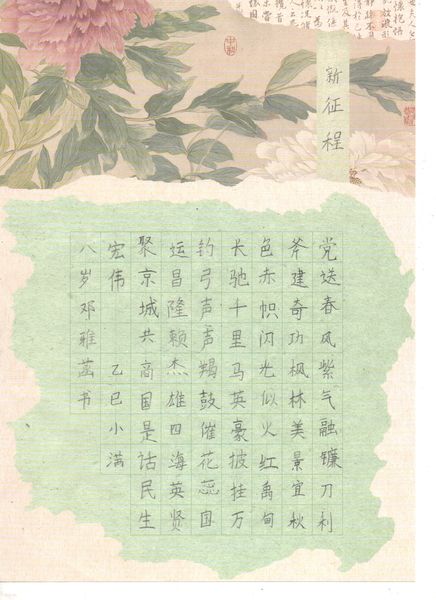 新征程
党送春风紫气融镰刀利
斧建奇功枫林美景宜秋
色赤帜闪光似火红禹甸
长驰千里马英豪披挂万
钧弓声声羯鼓催花蕊国
运昌隆赖杰雄四海英贤
聚京城共商国是诂民生
宏伟 乙巳小满
八岁邓雅菡书